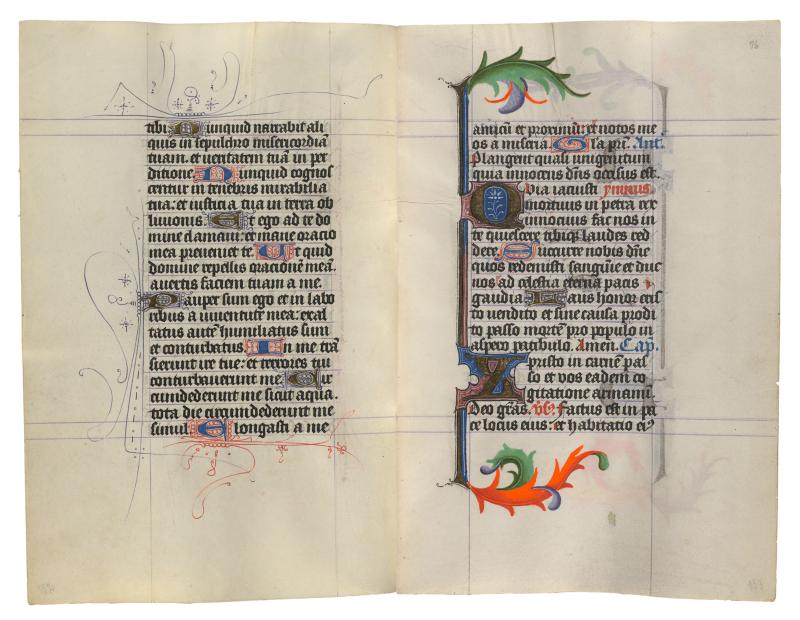 tibi. Nunquid narrabit ali
quis in sepulchro misericordiā
tuam. et veritatem tuā in per
ditione. Nunquid cognos
centur in tenebris mirabilia
tua: et iusticia tua in terra ob
liuionis. Et ego ad te do
mine clamaui: et mane oracio
mea preveniet te. Ut quid
domine repellis orationem meā.
avertis faciem tuam a me.
Pauper sum ego et in labo
ribus a iuventute mea: exal
tatus autē humiliatus sum
et conturbatus. In me trā
sierunt ire tue: et terrores tui
conturbaverunt me. Cir
cumdederunt me sicut aqua.
tota die circumdederunt me
simul. Elongasti a me
76
amicū et proximū: et notos me
os a miseria. Gl'a pr̄i. Ant.
Plangent quasi unigenitum
quia innocens dn̄s occisus est.
Qvia iacuisti ymnus.
mortuus in petra rex
innocuus fac nos in
te quiescere tibiq; laudes red
dere. Succurre nobis dn̄e
quos redemisti sanguīe et duc
nos ad celestia eterna pacis
gaudia. Laus honor cris
to vendito et sine causa prodi
to passo mortē pro populo in
aspero patibulo. Amen. Cap.
Xpristo in carne pas
so et vos eadem co
gitatione armamī.
Deo grās. Vs. Factus est in pa
ce locus eius: et habitatio ei9